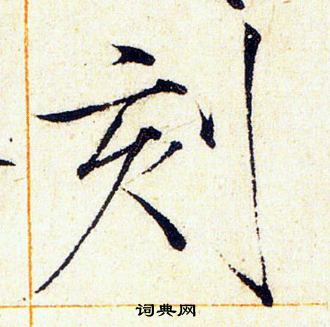 刻
词典网